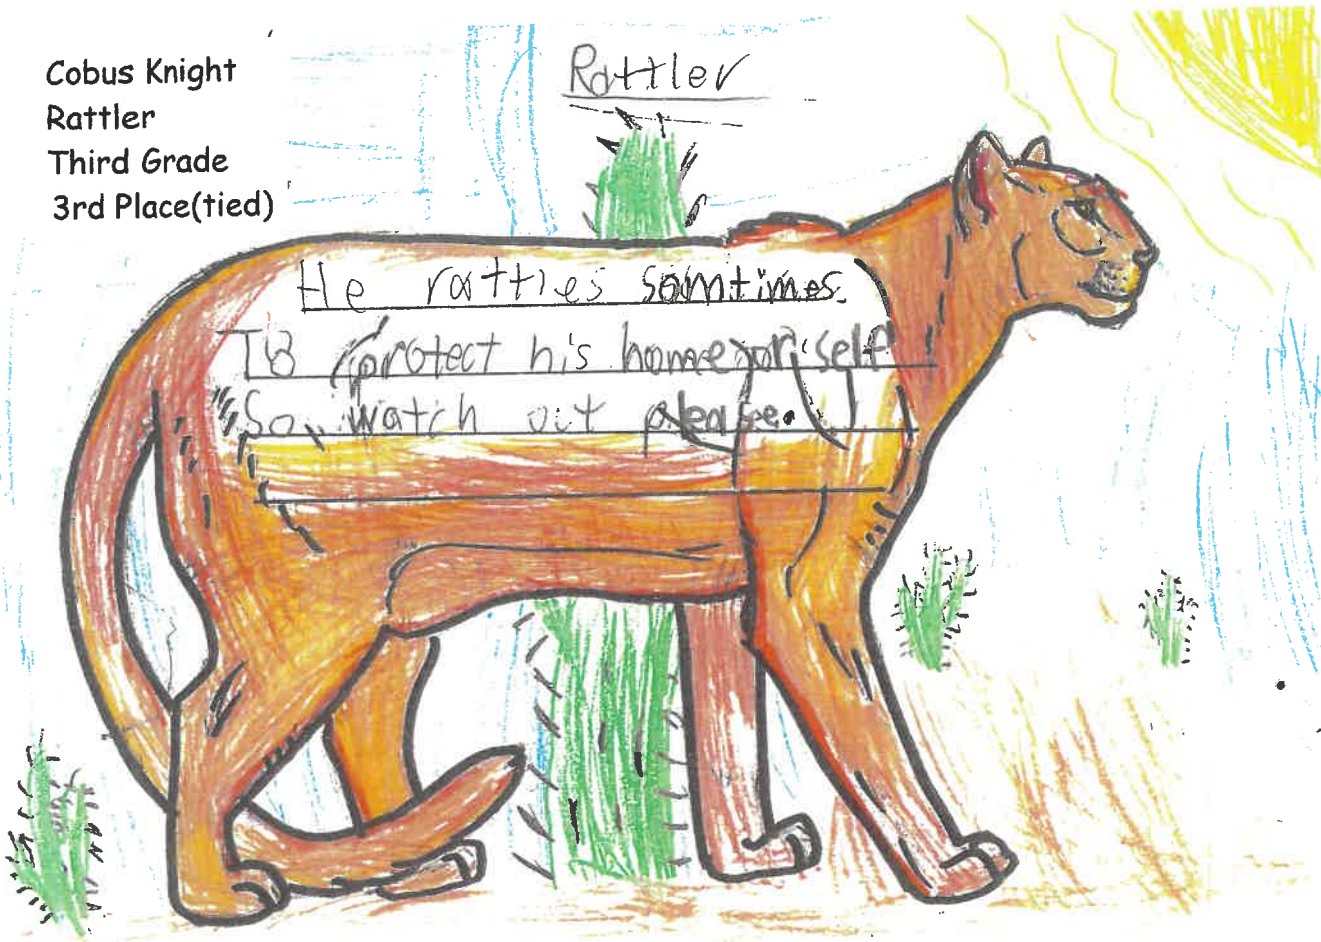 Cobus Knight
Rattler
Third Grade
3rd Place(tied)
Rattler
He rattles somtimes.
To protect his home or self
So, watch out please.